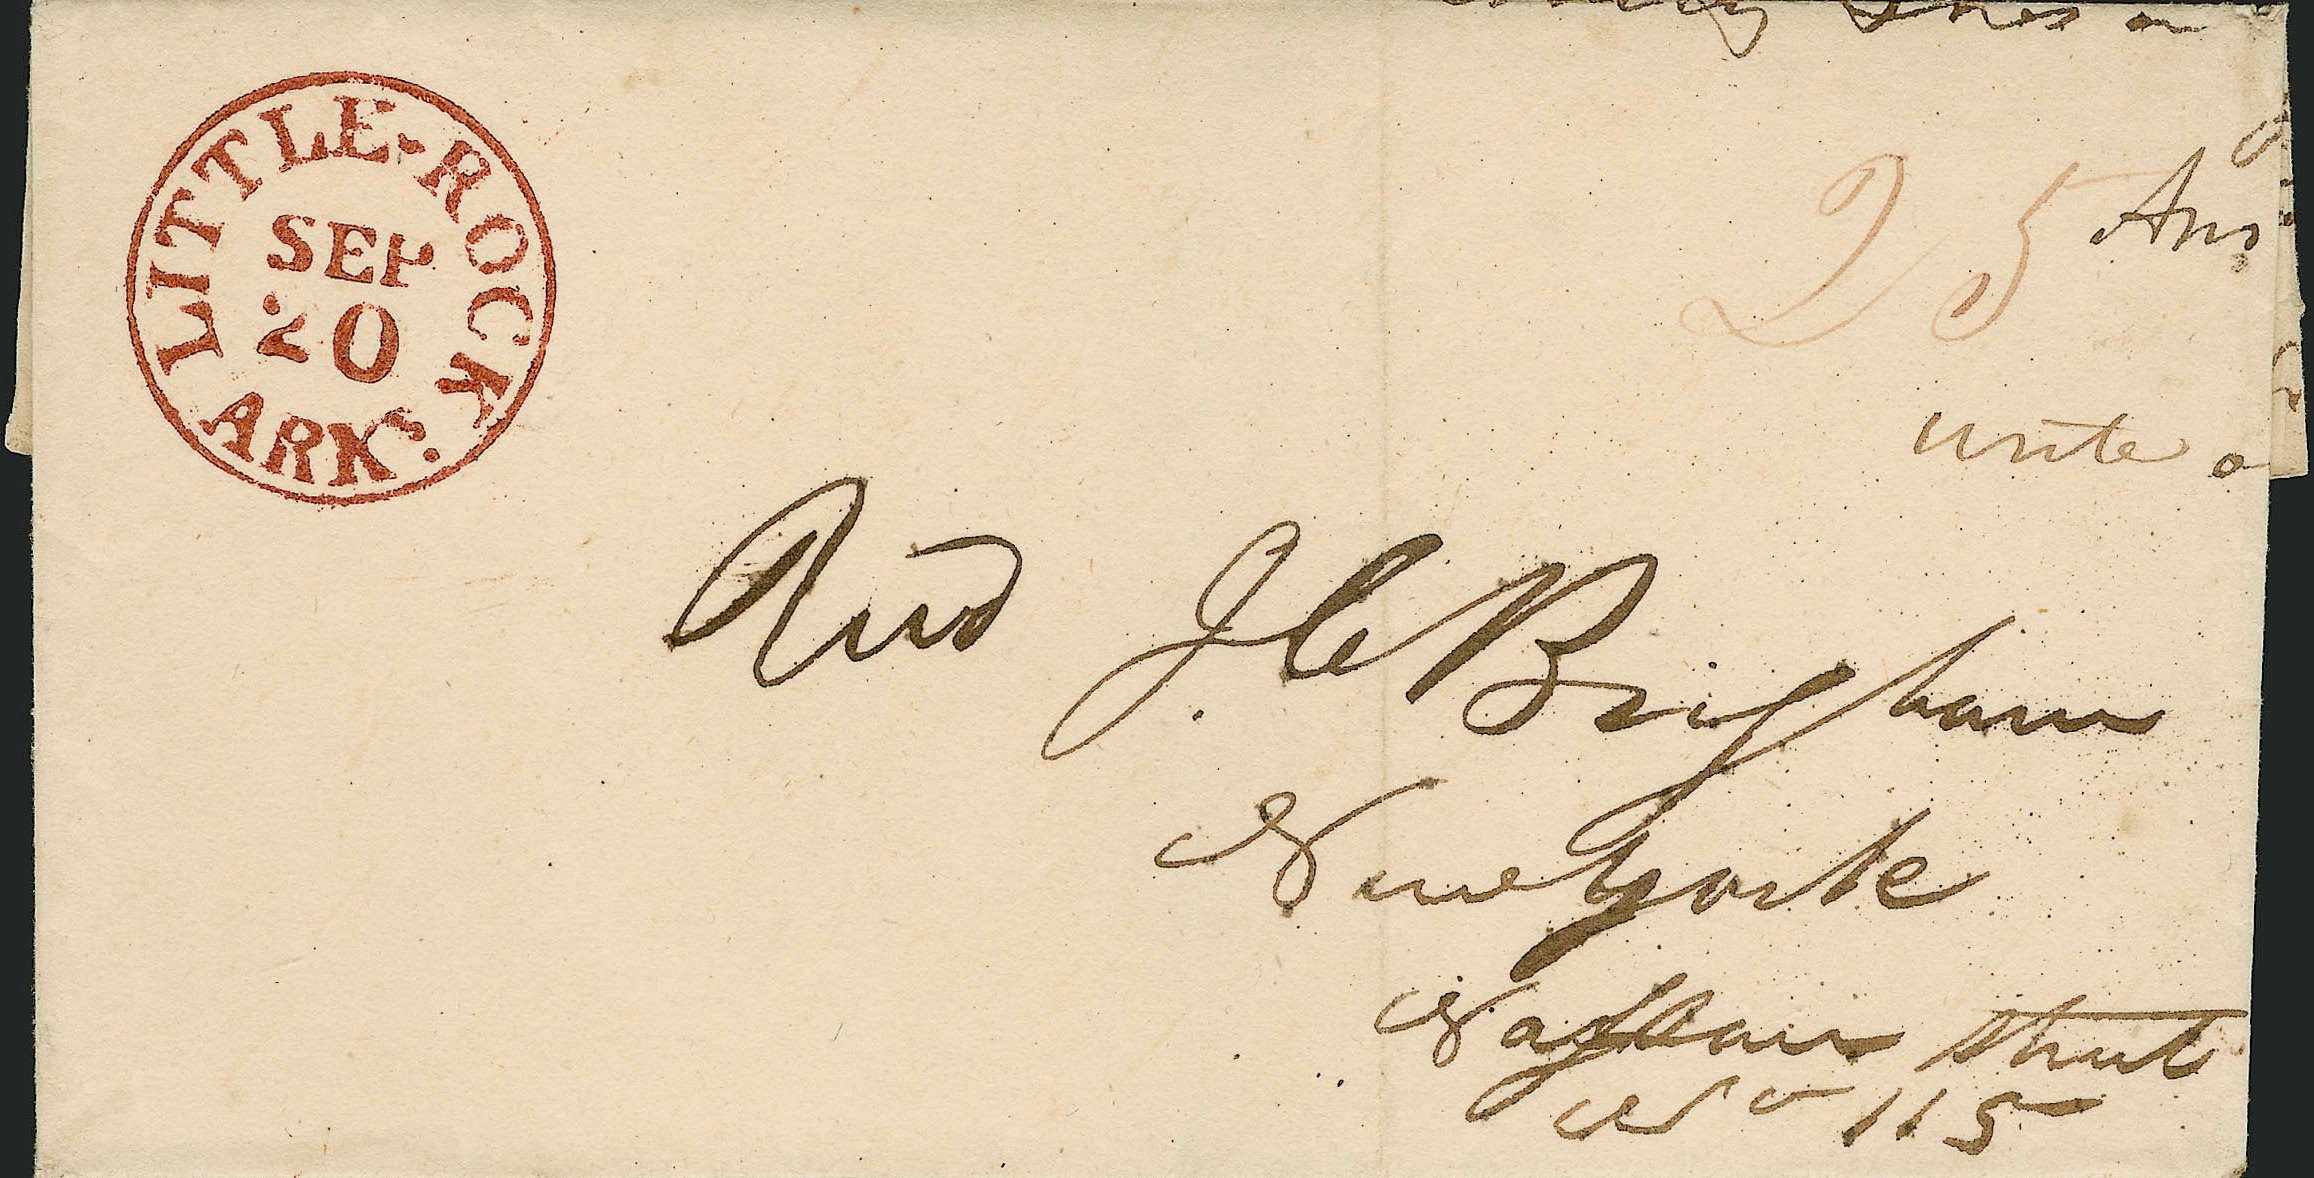 LITTLE-ROCK
SEP
20
ARKs.
25
Ans
write a
Revd J C Brigham
New York
Nassau Street
No 115